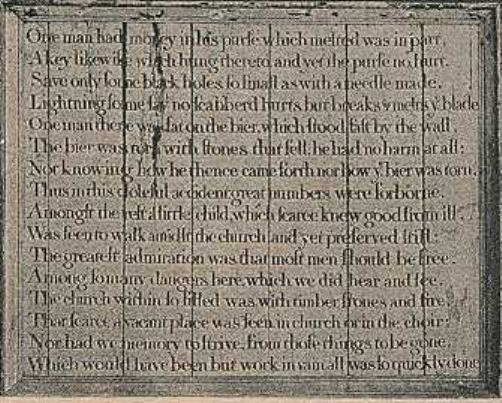 One man had money in his purſe which melted was in part.
A key likewiſe which hung thereto and yet the purſe no hurt.
Save only ſome black holes ſo ſmall as with a needle made.
Lightning ſome ſay no ſcabberd hurts but breaks & melts yᵉ blade
One man there was ſat on the bier, which ſtood faſt by the wall.
The bier was torn with ſtones that fell: he had no harm at all:
Nor knowing how he thence came forth nor how yᵉ bier was torn.
Thus in this doleful accident great numbers were forborne.
Amongſt the reſt a little child, which ſcarce knew good from ill.
Was ſeen to walk amidſt the church and yet preſerved ſtill:
The greateſt admiration was that moſt men ſhould be free.
Among ſo many dangers here, which we did hear and ſee.
The church within ſo filled was with timber ſtones and fire
That ſcarce a vacant place was ſeen in church or in the choir:
Nor had we memory to ſtrive, from thoſe things to be gone.
Which would have been but work in vain all was ſo quickly done